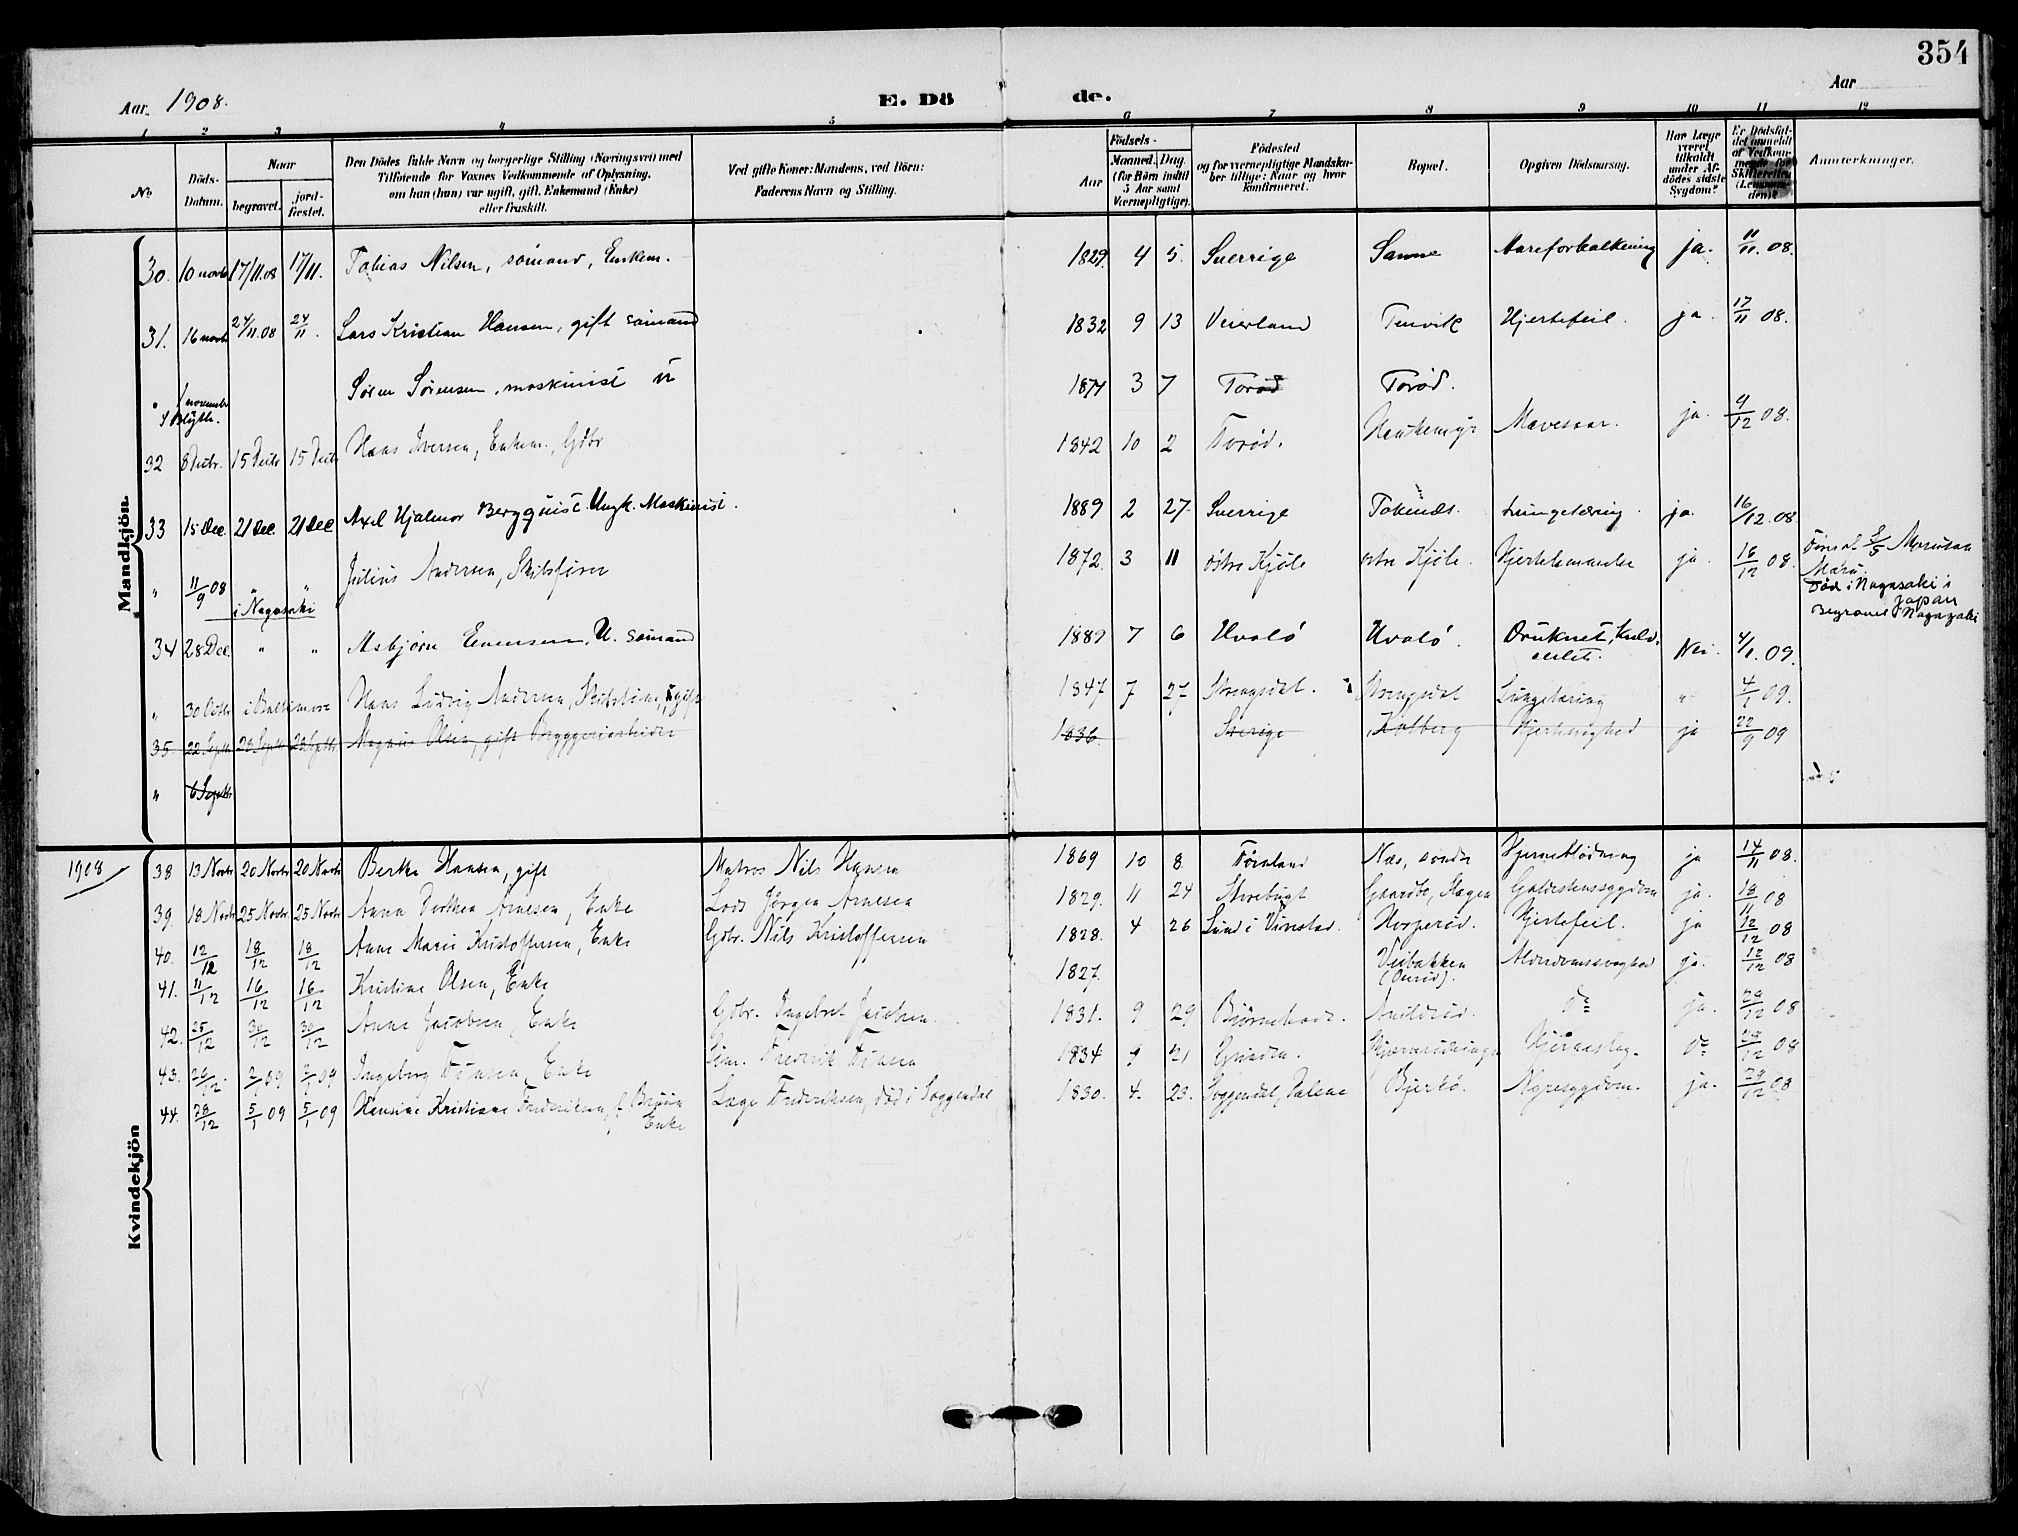 354
Aar 1908.
E. Döde.
Aar
1 2 3 4 5 6 7 8 9 10 11 12
No.
Döds-Datum.
Naar
begravet.
jord-fæstet.
Den Dödes fulde Navn og borgerlige Stilling (Næringsvei) med
Tilföiende for Voxnes Vedkommende af Oplysning,
om han (hun) var ugift, gift, Enkemand (Enke)
eller fraskilt.
Ved gifte Koner: Mandens, ved Börn:
Faderens Navn og Stilling.
Födsels-
Aar
Maaned. Dag
(for Börn indtil
5 Aar samt
Værnepligtige).
Födested
og for værnepligtige Mandskaber tillige: Naar og hvor konfirmeret.
Bopæl.
Opgiven Dödsaarsag.
Har Læge
været
tilkaldt
under Afdödes sidste
Sygdom?
Er Dödsfaldet anmeldt
af Vedkommende for
Skifteretten
(Lensmanden)?
Anmærkninger.
Mandkjön.
30. 10 novb 17/11.08 17/11. Tobias Nilsen, sömand, Enkem. 1829. 4 5. Sverrige Sanne Aareforkalkning ja. 11/11. 08.
31. 16 novb 24/11.08 24/11. Lars Kristian Hansen, gift sömand 1832 9 13 Veierland Tenvik Hjertefeil. ja. 17/11 08.
" november Blyth. Sören Sörensen, maskinist 1874 3 7 Torød Torød.
32 8 Decbr. 15 Decbr 15 Decbr Hans Iversen, Enkem., Gdbr 1842 10 2 Torød. Mavesaar. ja. 9/12 08.
33 15 Dec. 21 Dec. 21 Dec Axel Hjalmar Bergquist. Ungk. Maskinist. 1889 2 27 Sverrige Tokenæs. Lungetæring. ja. 16/12.08.
" 11/9 08 " " i Nagasaki Julius Andersen, Skibsförer 1872. 3 11 östre Kjöle östre Kjöle. Hjertelammelse ja. 16/12 08.
Död i Nagasaki i
Japan
Begravet i Nagasaki
34 28 Dec. " " Asbjörn Evensen, U. sömand 1889 7 6 Hvalö Hvalö. Druknet, 4/1. 09. Nei.
" 30 Octbr i Baltimore Hans Ludvig Andersen, Skibsförer, gift 1847 7 27 Strengsdal. Strengsdal Lungetæring " 4/1 09.
35. 22. Septb 28 Septb 28 Septb Magnus Olsen, gift Bryggeriarbeider 1836. Sverige Kolberg Hjertesvaghed ja 22/9 09
" 6 Septbr
Kvindekjön
1908
38 13 Novbr 20 Novbr 20 Novbr Berthe Hansen, gift Matros Nils Hansen 1869 10 8 Föinland Næs, söndre Hjerneblödning ja 14/11 08.
39. 18 Novbr 25 Novbr 25 Novbr Anna Dorthea Arnesen, Enke Lods Jörgen Arnesen 1829. 11 24 Storebugt Gaardbo, Slagen Galdestenssygdom ja. 18/11 08
40. 12/12 18/12 18/12 Anne Marie Kristoffersen, Enke Gdbr. Nils Kristoffersen 1828. 4 26 Lund i Hvasser Horperöd. Hjertefeil. ja 12/12 08
41. 11/12 16/12 16/12 Kristine Olsen, Enke 1827. Veibakken Alderdomssvaghed ja. 12/12 08
42. 25/12 30/12 30/12 Anne Jacobsen, Enke Gdbr. Ingebret Jacobsen. 1831. 9 29 Björnebode. do ja. 29/12 08
43. 26/12. 2/1 09 2/1 09 Ingeborg Enke Söm. Fredrik 1834 9 21 Grinden. Hjerneslag. do 29/12 08
44. 28/12 5/1 09 5/1 09 Hansine Kristiane Frederiksen, f. Bruun Enke Læge Frederiksen, död i Soggendal 1830. 4. 23. Soggendal, Dalene Bjerkö. Nyresygdom. ja. 29/12 08